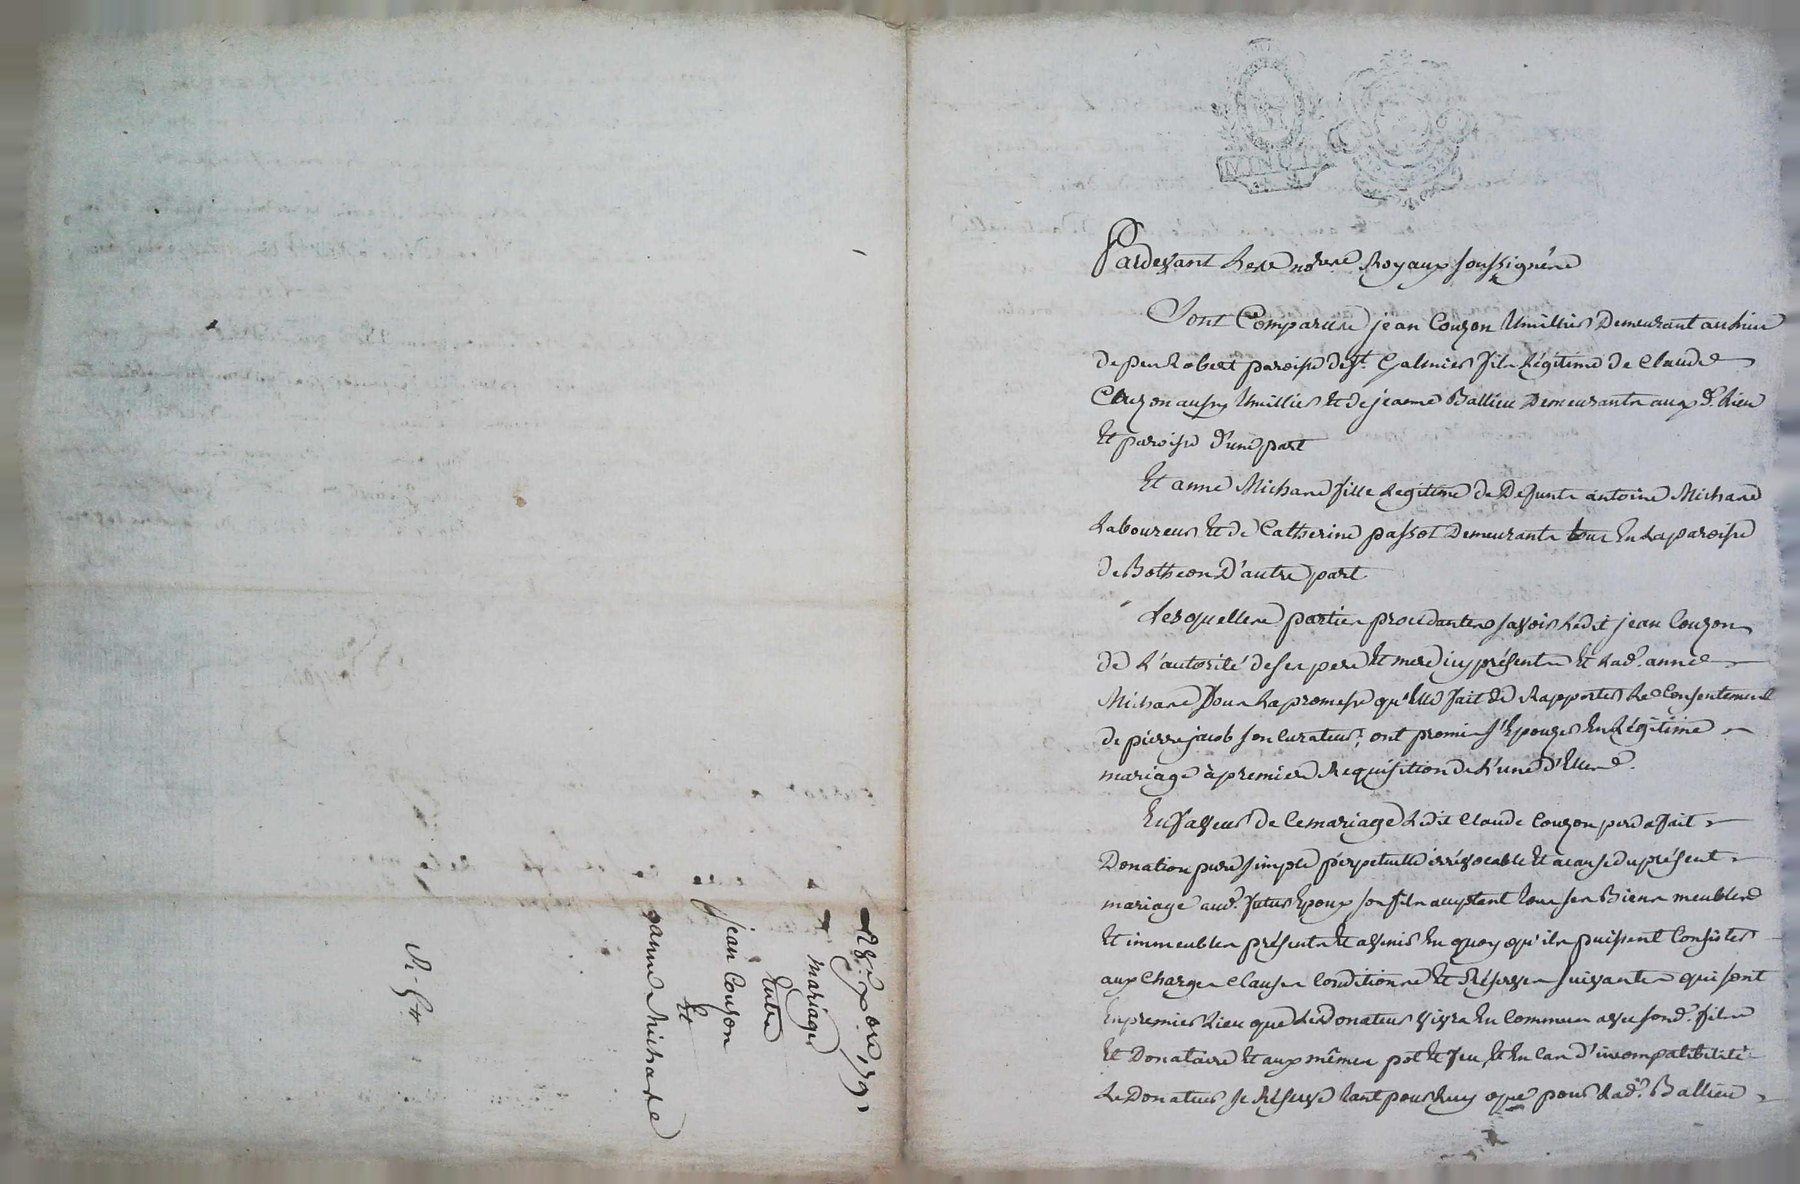 mariage
Entre
jean Couzon
Et
anne Michard
MINUT
Pardevant Les nores Royaux soussignés
Sont Comparus jean Couzon Demeurant au Lieu
de peu Robert paroisse de St. Galmier fils Légitime de Claude
Couzon aussy Et de jeanne Ballieu Demeurants aux d. Lieu
Et paroisse d'une part
Et anne Michard fille Legitime de Defunts antoine Michard
Laboureur Et de Catherine passot Demeurante En La paroisse
de Botheon D'autre part
Lesquelles parties procedantes savoir Ledit jean Couzon
de L'autorité de ses pere Et mere icy présents Et Lad. anne
Michard sous La promesse qu'Elle fait de Rapporter Le Consentement
de pierre jacob son Curateur, ont promis s'Epouzer En Légitime
mariage à premiere Requisition de L'une d'Elles.
En faveur de Ce mariage Ledit Claude Couzon pere a fait
Donation pure simple perpetuelle irrévocable Et à cause du présent
mariage aud. futur Epoux son fils acceptant tous ses Biens meubles
Et immeubles présents Et avenir En quoy qu'ils puissent Consister
aux Charges Clauses Conditions Et Réserves suivantes qui sont
En premier Lieu que Le Donateur vivra En Commun avec sond. fils
Et Donataire Et aux mêmes pot Et feu, Et En Cas d'incompatibilité
Le Donateur se Réserve tant pour Luy que pour Lad. Ballieu